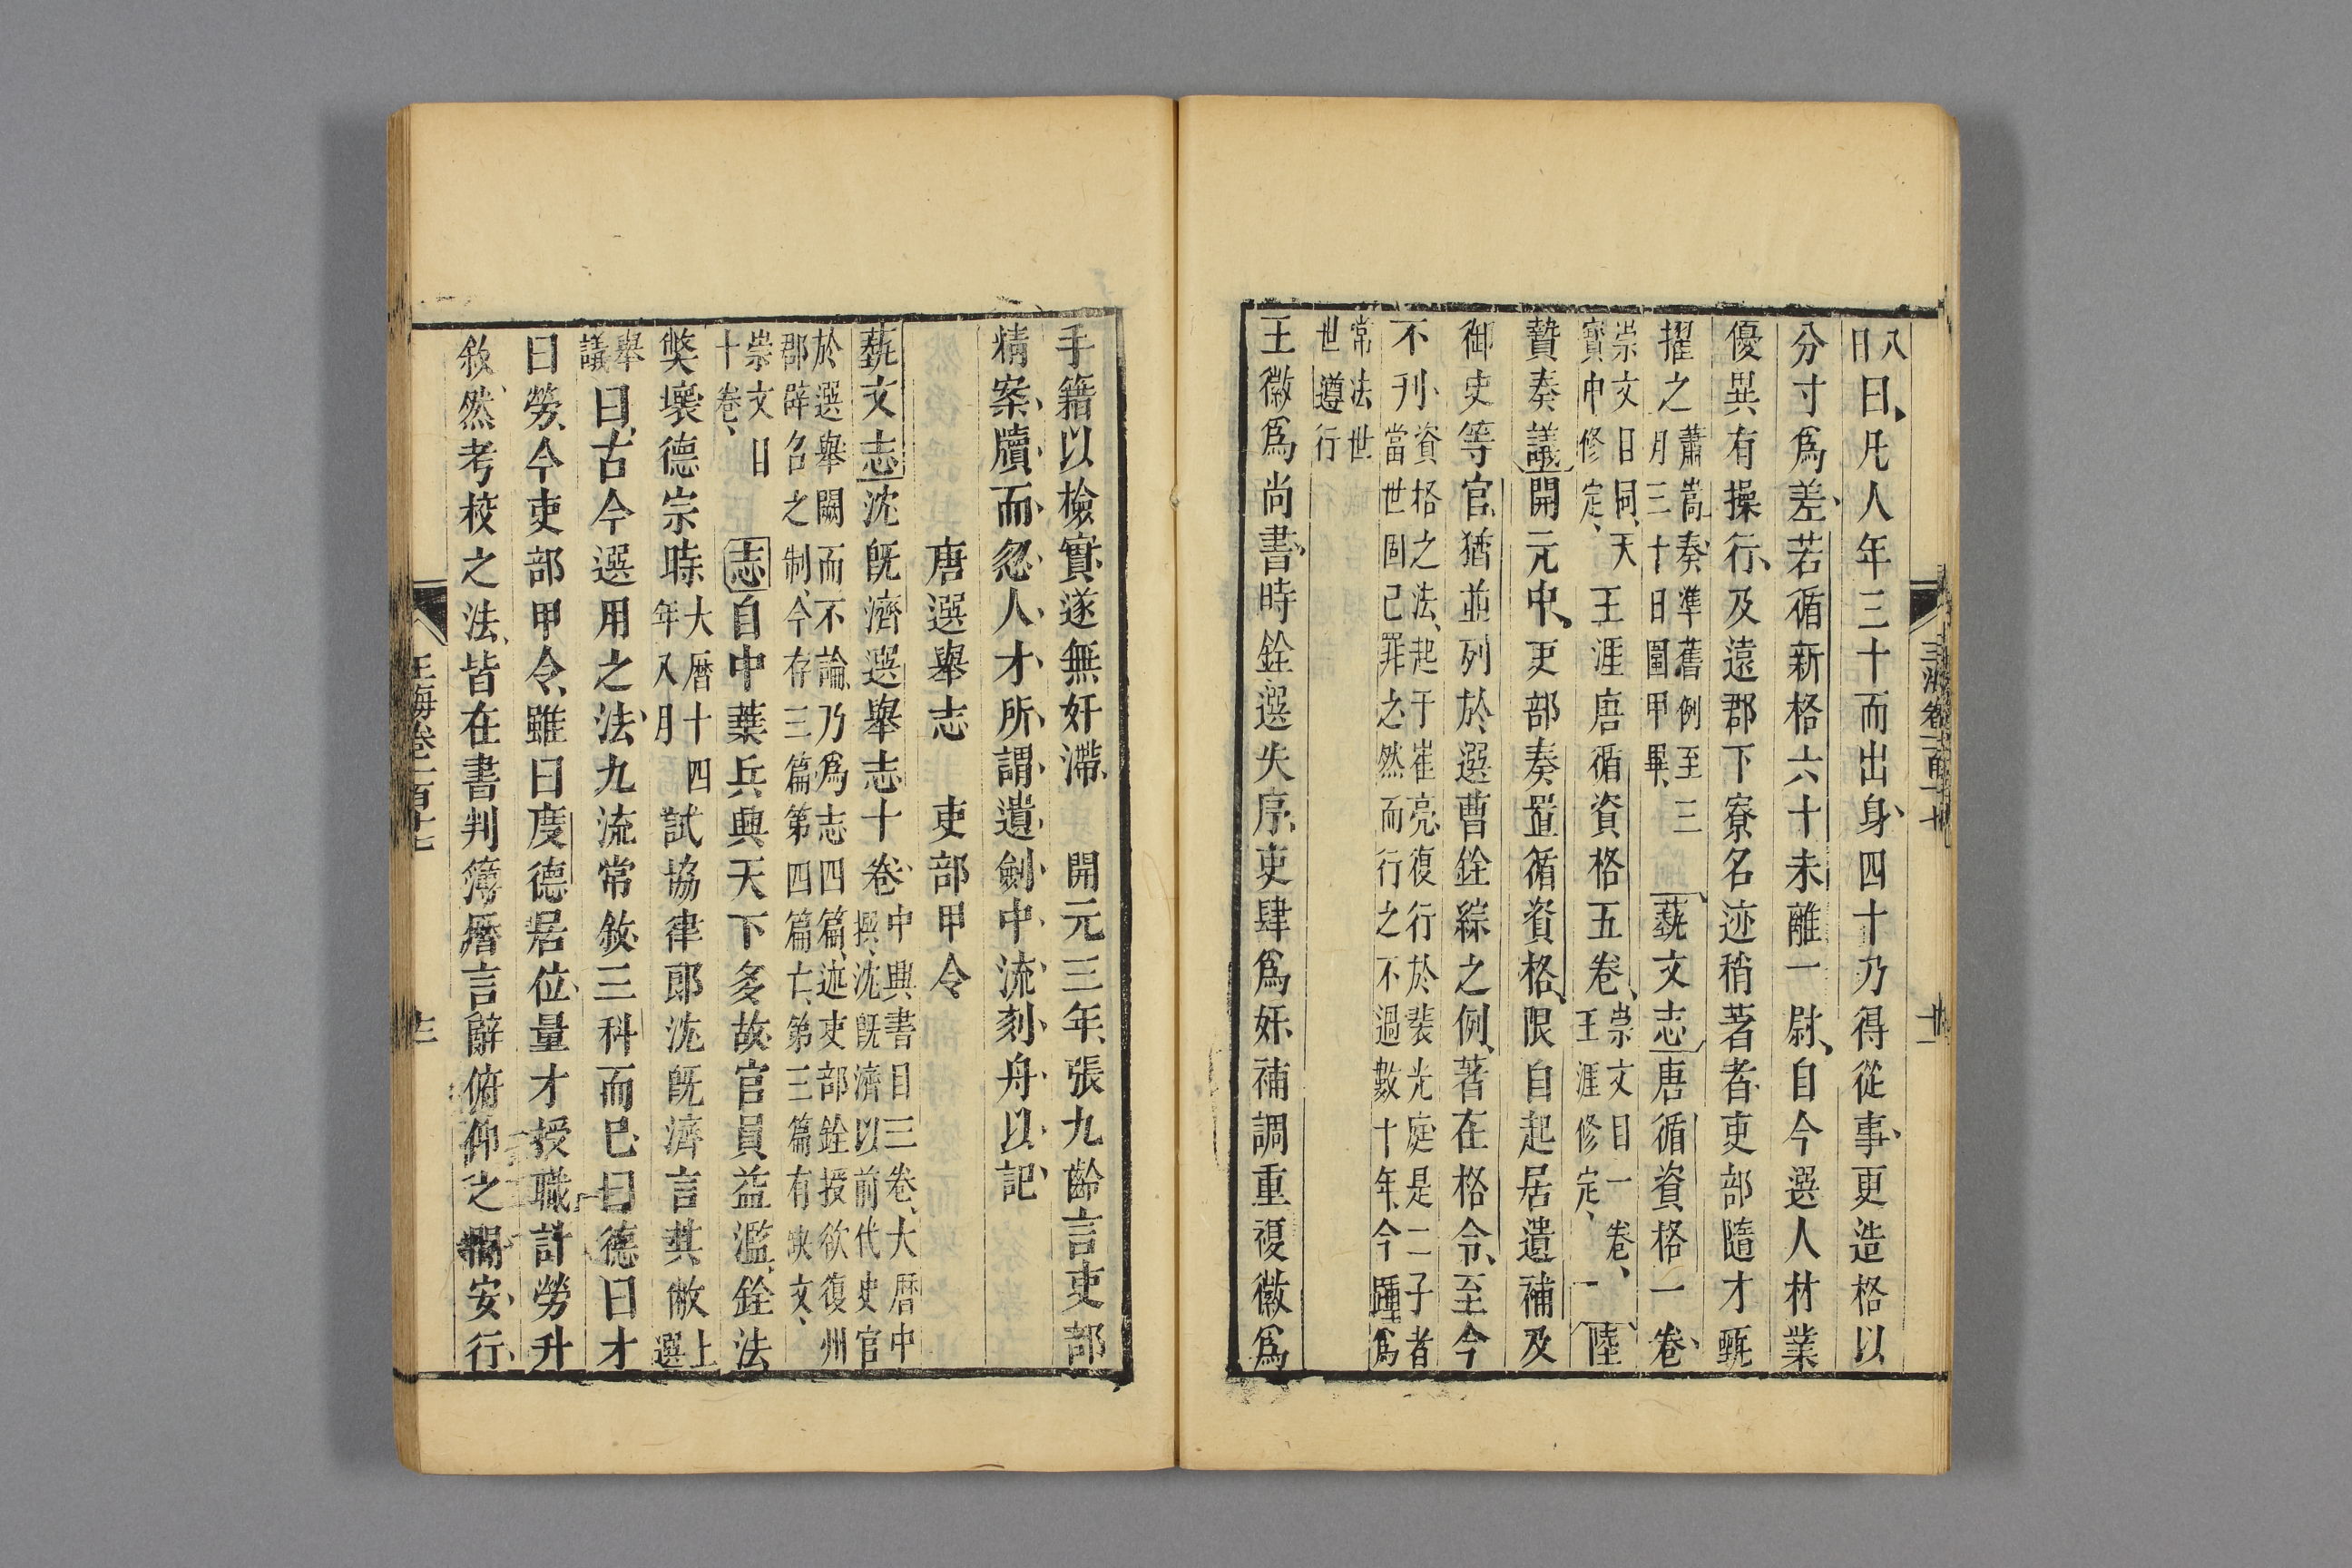 八日曰凡人年三十而出身四十乃得從事更造格以
分寸爲差若循新格六十未離一尉自今選人材業
優異有操行及遠郡下寮名迹稍著者吏部隨才甄
擢之蕭嵩奏準舊例至三月三十日團甲畢 藝文志唐循資格一卷
崇文目同天寶中修定 王涯唐循資格五卷崇文目一卷王涯修定 一 陸
贄奏議開元中吏部奏置循資格限自起居遺補及
御史等官猶並列於選曹銓綜之例著在格令至今
不刋資格之法起于崔亮復行於裴光庭是二子者當世固已罪之然而行之不過數十年今踵爲
常法世世遵行
王徽爲尚書時銓選失序吏肆爲奸補調重複徽爲
手籍以檢實遂無奸滯 開元三年張九齡言吏部
精案牘而忽人才所謂遺劍中流刻舟以記
唐選舉志 吏部甲令
藝文志沈既濟選舉志十卷中興書目三卷大曆中撰沈既濟以前代史官
於選舉闕而不論乃爲志四篇述吏部銓授欲復州郡辟召之制今存三篇第四篇亡第三篇有缺文
崇文目十卷 志自中葉兵興天下多故官員益濫銓法
獘壞德宗時大曆十四年八月試協律郎沈既濟言其敝上選
舉議曰古今選用之法九流常敘三科而已曰德曰才
曰勞今吏部甲令雖曰度德居位量才授職計勞升
敘然考校之法皆在書判簿曆言辭俯仰之間安行
玉海卷一百十七